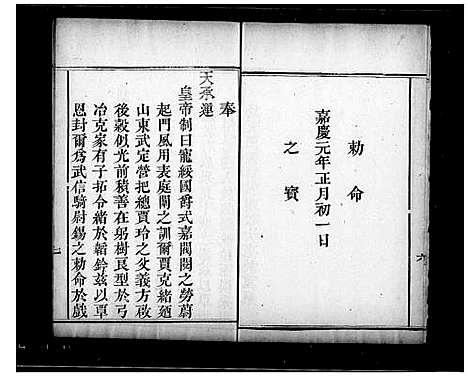 勅命
嘉慶元年正月初一日
之寳
六
奉
天承運
皇帝制曰寵綏國爵式嘉閥閱之勞蔚
起門風用表庭闈之訓爾賈克緒廼
山東武定營把總賈玲之父義方啟
後穀似光前積善在躬樹良型於弓
冶克家有子拓令緒於韜鈐兹以覃
恩封爾爲武信騎尉錫之勅命於戲
七